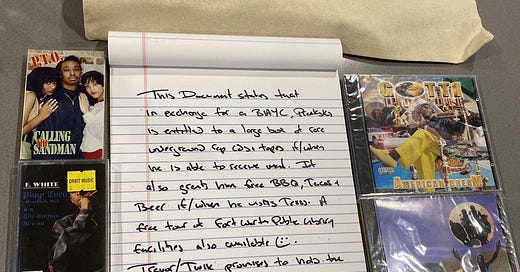 P.T.O.
CALLING
SANDMAN
ORBIT MUSIC
WHITE
This Document states that
in exchange for a BAYC,
is entitled to a large box of rare
underground rap CDs/tapes if/when
he is able to receive mail. It
also grants him free BBQ, Tacos +
Beer if/when he visits Texas. A
free tour of Fort Worth Public Library
facilities also available
promises to hold the
AMERICAN DREAM